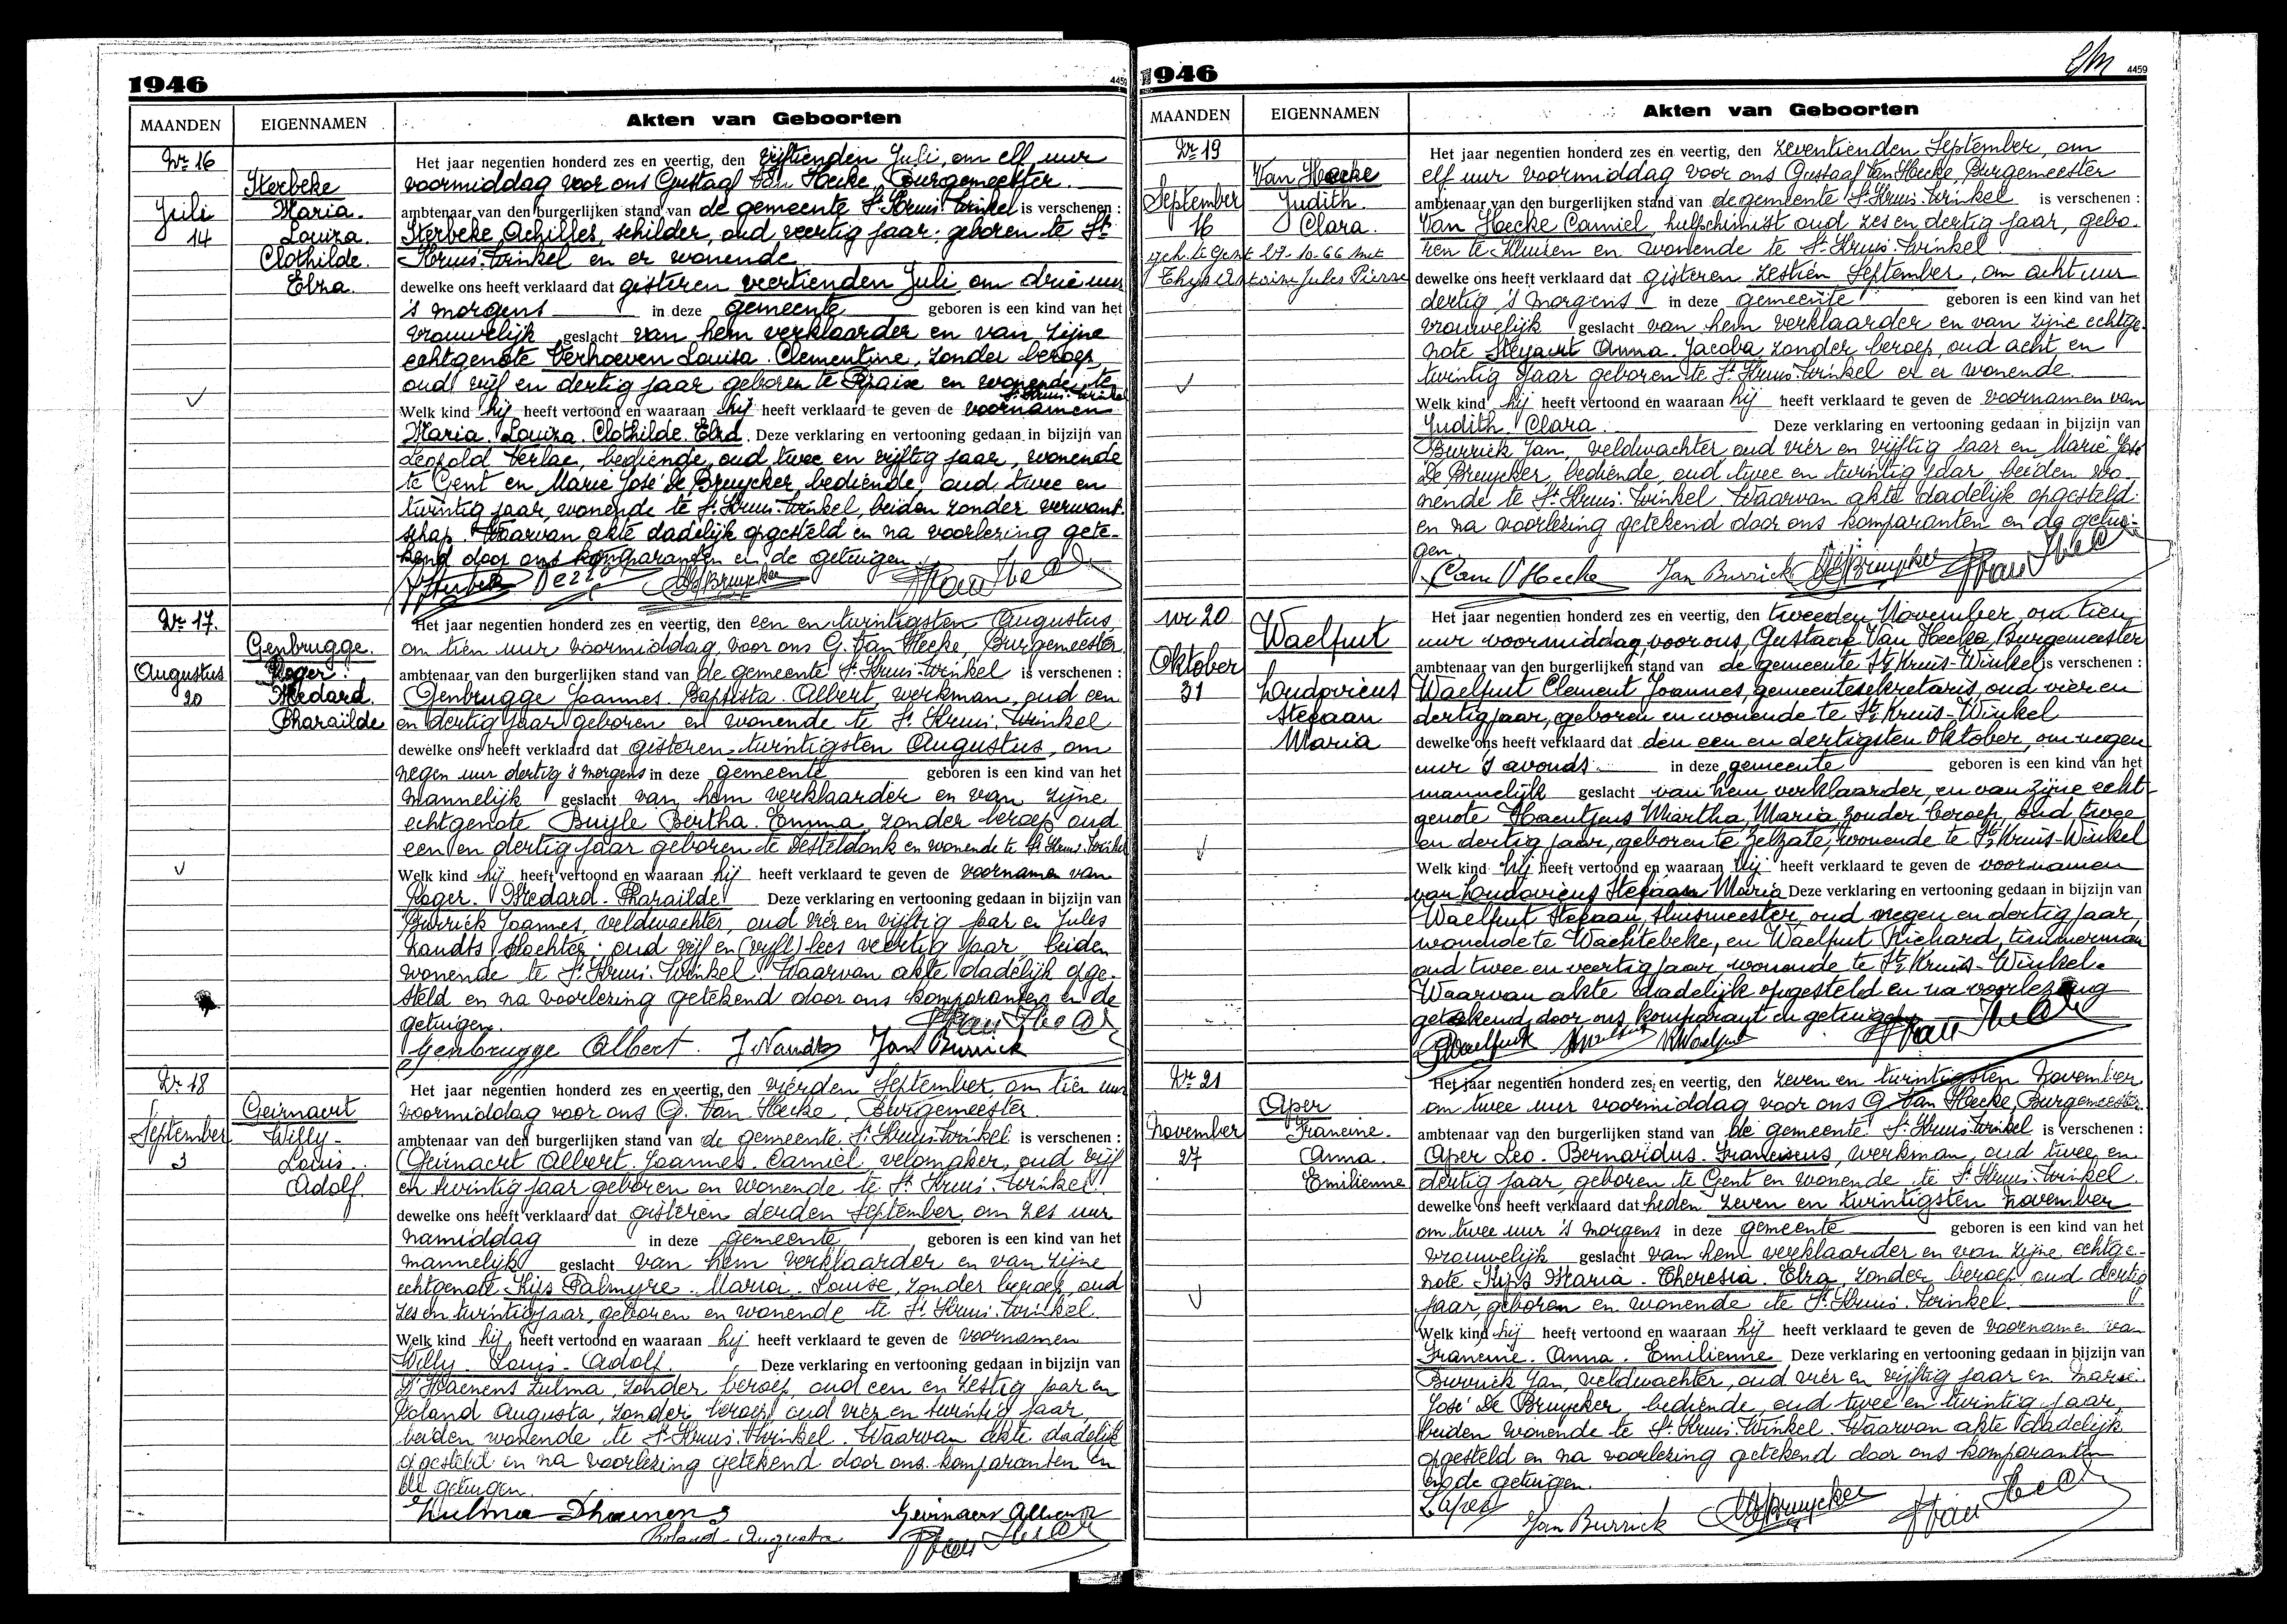 1946
4459
MAANDEN
EIGENNAMEN
Akten van Geboorten
Nr 16
Sterbeke
Juli
Maria.
14
Louiza.
Clothilde.
Elza.
Het jaar negentien honderd zes en veertig, den vijftienden Juli, om elf uur
voormiddag voor ons Gustaaf Van Hecke, Burgemeester
ambtenaar van den burgerlijken stand van de gemeente St Kruis-Winkel is verschenen :
Sterbeke Achilles, schilder, oud veertig jaar, geboren te St
Kruis-Winkel en er wonende
dewelke ons heeft verklaard dat gisteren veertienden Juli om drie uur
's morgens in deze gemeente geboren is een kind van het
vrouwelijk geslacht van hem verklaarder en van zijne
echtgenote Verhoeven Louisa. Clementine, zonder beroep,
oud vijf en dertig jaar geboren te en wonende te
St Kruis-Winkel
Welk kind hij heeft vertoond en waaraan hij heeft verklaard te geven de voornamen
Maria. Louiza. Clothilde. Elza. Deze verklaring en vertooning gedaan in bijzijn van
Leopold bediende, oud twee en vijftig jaar, wonende
te Gent en Marie José De Bruycker, bediende oud twee en
twintig jaar, wonende te St Kruis-Winkel, beiden zonder verwant-
schap. Waarvan akte dadelijk opgesteld en na voorlezing gete-
kend door ons komparanten en de getuigen.
Nr 17.
Genbrugge.
Augustus
Roger.
20
Medard.
Pharaïlde
Het jaar negentien honderd zes en veertig, den een en twintigsten Augustus
om tien uur voormiddag, voor ons G. Van Hecke, Burgemeester
ambtenaar van den burgerlijken stand van de gemeente St Kruis-Winkel is verschenen :
Genbrugge Joannes. Baptista. Albert werkman, oud een
en dertig jaar geboren en wonende te St Kruis-Winkel
dewelke ons heeft verklaard dat gisteren twintigsten Augustus, om
negen uur dertig 's morgens in deze gemeente geboren is een kind van het
mannelijk geslacht van hem verklaarder en van zijne
echtgenote Buyle Bertha. Emma, zonder beroep oud
een en dertig jaar geboren te Desteldonk en wonende te St Kruis-Winkel
Welk kind hij heeft vertoond en waaraan hij heeft verklaard te geven de voornamen van
Roger. Medard. Pharaïlde Deze verklaring en vertooning gedaan in bijzijn van
Burrick Joannes, veldwachter, oud vier en vijftig jaar en Jules
Nandts slachter; oud vijf en (vijft) lees veertig jaar, beiden
wonende te St Kruis-Winkel. Waarvan akte dadelijk opge-
steld en na voorlezing getekend door ons komparanten en de
getuigen.
Genbrugge Albert. J Nandts Jan Burrick
Nr 18
Geirnaert
September
Willy-
3
Louis.
Adolf.
Het jaar negentien honderd zes en veertig, den vierden September, om tien uur
voormiddag voor ons G. Van Hecke, Burgemeester
ambtenaar van den burgerlijken stand van de gemeente St Kruis-Winkel is verschenen :
Geirnaert Albert. Joannes. Camiel. velomaker, oud vijf
en twintig jaar geboren en wonende te St Kruis-Winkel
dewelke ons heeft verklaard dat gisteren derden September, om zes uur
namiddag in deze gemeente geboren is een kind van het
mannelijk geslacht van hem verklaarder en van zijne
echtgenote Kips Palmyre. Maria. Louise, zonder beroep, oud
zes en twintig jaar, geboren en wonende te St Kruis-Winkel.
Welk kind hij heeft vertoond en waaraan hij heeft verklaard te geven de voornamen
Willy. Louis-Adolf. Deze verklaring en vertooning gedaan in bijzijn van
D'Haenens Zulma, zonder beroep, oud een en zestig jaar en
Roland Augusta, zonder beroep, oud vier en twintig jaar
beiden wonende te St Kruis-Winkel. Waarvan akte dadelijk
opgesteld en na voorlezing getekend door ons komparanten en
de getuigen.
Zulma Dhaenens Geirnaert Albert
Roland Augusta
1946
4459
MAANDEN
EIGENNAMEN
Akten van Geboorten
Nr 19
Van Hecke
September
Judith.
16
Clara.
geh. te Gent 27-10-66 met
Thys Antoine Jules Pierre
Het jaar negentien honderd zes en veertig, den zeventienden September, om
elf uur voormiddag voor ons Gustaaf Van Hecke, Burgemeester
ambtenaar van den burgerlijken stand van de gemeente St Kruis-Winkel is verschenen :
Van Hecke Camiel, hulpchimist oud zes en dertig jaar, gebo-
ren te Kluizen en wonende te St Kruis-Winkel
dewelke ons heeft verklaard dat gisteren zestien September, om acht uur
dertig 's morgens in deze gemeente geboren is een kind van het
vrouwelijk geslacht van hem verklaarder en van zijne echtge-
note Steyaert Anna. Jacoba zonder beroep, oud acht en
twintig jaar geboren te St Kruis-Winkel en er wonende
Welk kind hij heeft vertoond en waaraan hij heeft verklaard te geven de voornamen van
Judith Clara Deze verklaring en vertooning gedaan in bijzijn van
Burrick Jan, veldwachter oud vier en vijftig jaar en Marie José
De Bruycker, bediende, oud twee en twintig jaar, beiden wo-
nende te St Kruis-Winkel. Waarvan akte dadelijk opgesteld
en na voorlezing getekend door ons komparanten en de getui-
gen.
Cam V Hecke Jan Burrick
nr 20
Waelput
Oktober
31
Ludovicus
Stefaan
Maria
Het jaar negentien honderd zes en veertig, den tweeden November, om tien
uur voormiddag, voor ons, Gustave Van Hecke Burgemeester
ambtenaar van den burgerlijken stand van de gemeente St Kruis-Winkel is verschenen :
Waelput Clement Joannes, gemeentesekretaris, oud vier en
dertig jaar, geboren en wonende te St Kruis-Winkel
dewelke ons heeft verklaard dat den een en dertigsten Oktober, om negen
uur 's avonds in deze gemeente geboren is een kind van het
mannelijk geslacht van hem verklaarder, en van zijne echt-
genote Haentjens Martha, Maria, zonder beroep, oud twee
en dertig jaar, geboren te Zelzate, wonende te St Kruis-Winkel
Welk kind hij heeft vertoond en waaraan hij heeft verklaard te geven de voornamen
van Ludovicus Stefaan Maria Deze verklaring en vertooning gedaan in bijzijn van
Waelput Stefaan, sluismeester, oud negen en dertig jaar,
wonende te Wachtebeke, en Waelput Richard, timmerman
oud twee en veertig jaar, wonende te St Kruis-Winkel.
Waarvan akte dadelijk opgesteld en na voorlezing
getekend door ons komparant en getuigen
Nr 21
Aper
November
Francine.
27
Anna.
Emilienne
Het jaar negentien honderd zes en veertig, den zeven en twintigsten November
om twee uur voormiddag voor ons G Van Hecke, Burgemeester
ambtenaar van den burgerlijken stand van de gemeente St Kruis-Winkel is verschenen :
Aper Leo. Bernardus. Franciscus, werkman, oud twee en
dertig jaar, geboren te Gent en wonende te St Kruis-Winkel
dewelke ons heeft verklaard dat heden zeven en twintigsten november
om twee uur 's morgens in deze gemeente geboren is een kind van het
vrouwelijk geslacht van hem verklaarder en van zijne echtge-
note Kips Maria. Theresia. Elza, zonder beroep oud dertig
jaar geboren en wonende te St Kruis-Winkel
Welk kind hij heeft vertoond en waaraan hij heeft verklaard te geven de voornamen van
Francine. Anna. Emilienne Deze verklaring en vertooning gedaan in bijzijn van
Burrick Jan, veldwachter, oud vier en vijftig jaar en Marie
José De Bruycker, bediende, oud twee en twintig jaar,
beiden wonende te St Kruis-Winkel. Waarvan akte dadelijk
opgesteld en na voorlezing getekend door ons komparanten
en de getuigen.
L Aper Jan Burrick